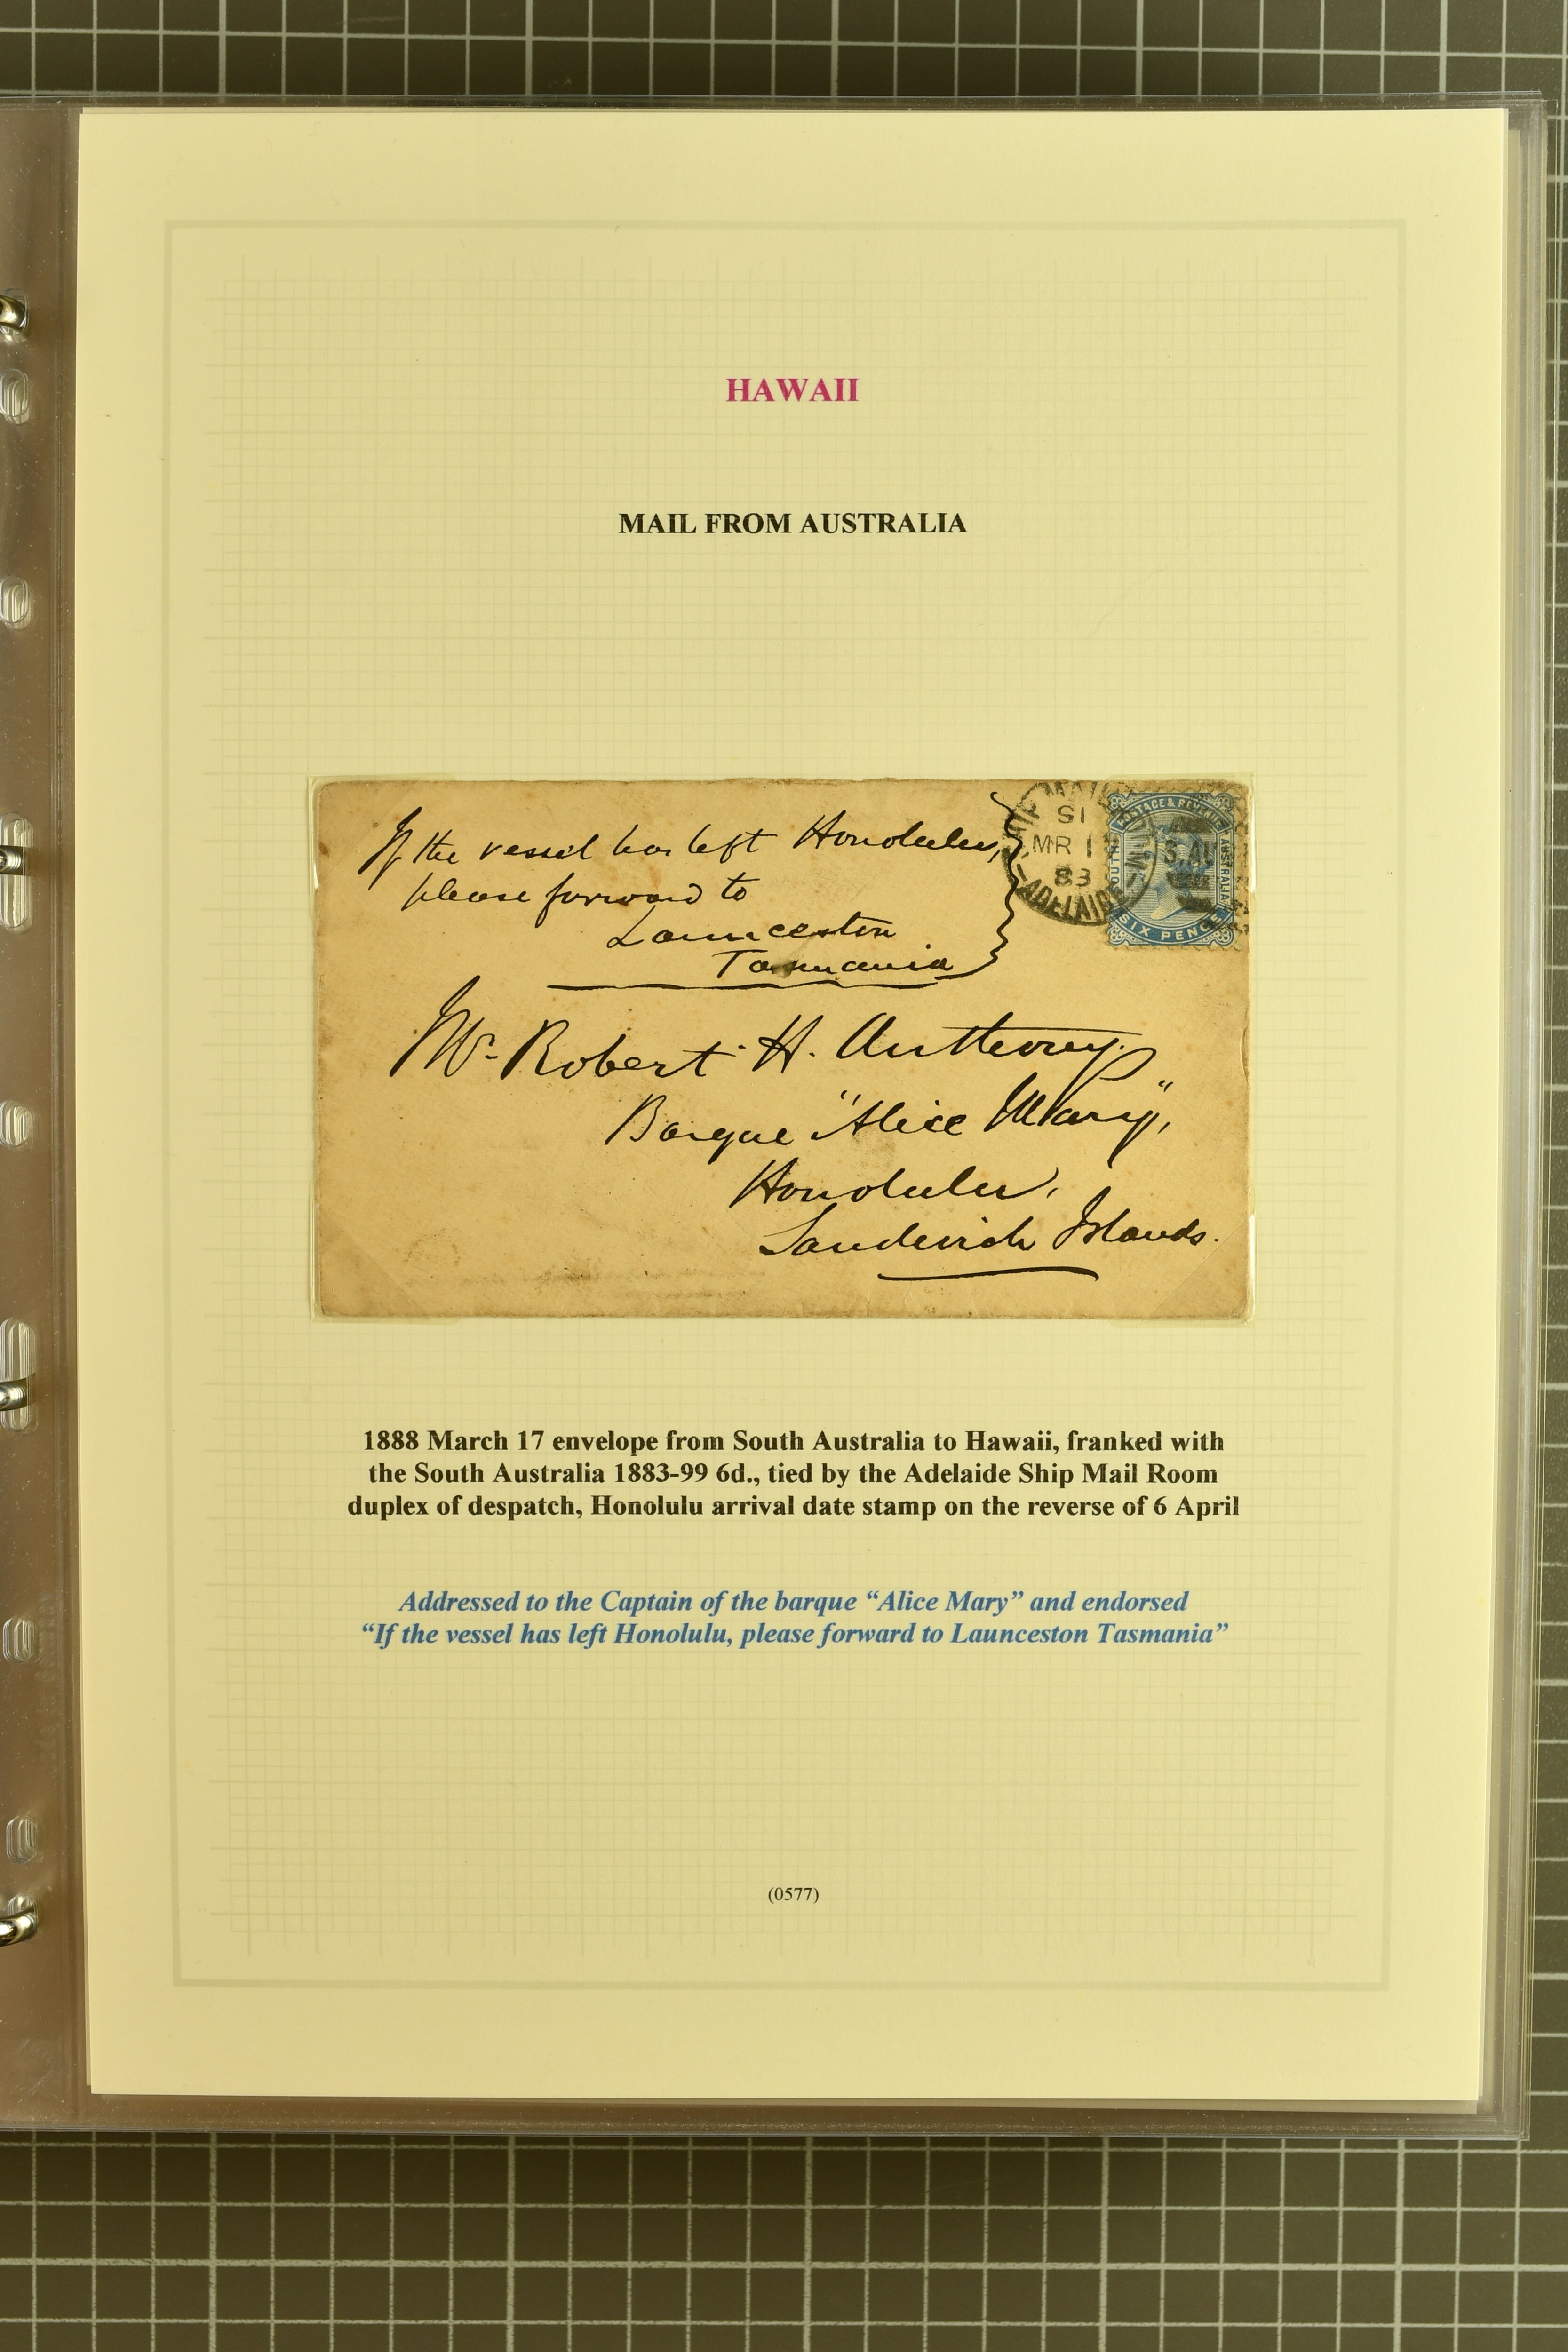 HAWAII
MAIL FROM AUSTRALIA
If the vessel has left Honolulu,
please forward to
Launceston
Tasmania
S1
MR 1
83
ADELAIDE
POSTAGE & REVENUE
SOUTH
AUSTRALIA
S.AU
SIX PENCE
Mr Robert H. Anthony.
Barque "Alice Mary",
Honolulu,
Sandwich Islands.
1888 March 17 envelope from South Australia to Hawaii, franked with
the South Australia 1883-99 6d., tied by the Adelaide Ship Mail Room
duplex of despatch, Honolulu arrival date stamp on the reverse of 6 April
Addressed to the Captain of the barque “Alice Mary” and endorsed
“If the vessel has left Honolulu, please forward to Launceston Tasmania”
(0577)